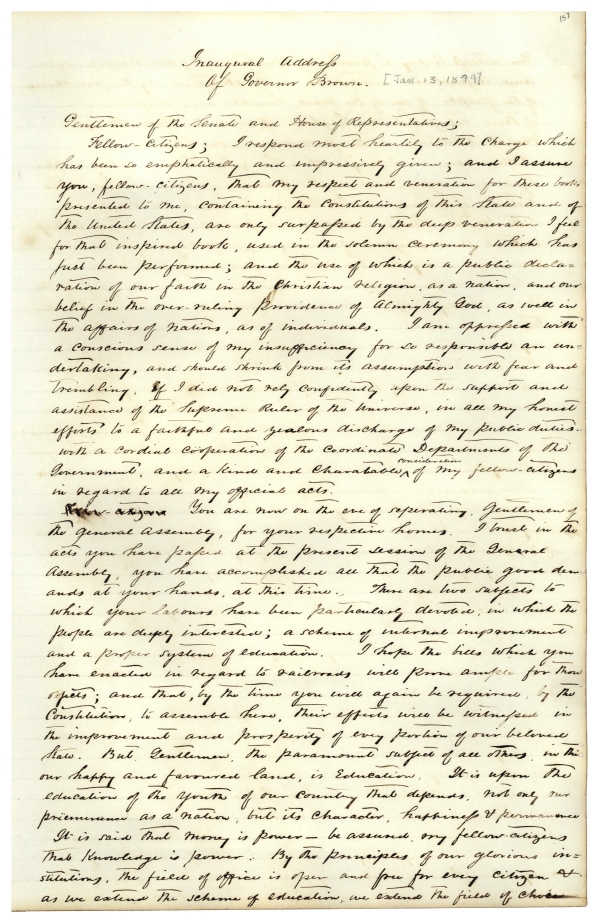 157
Inaugural Address
Of Governor Brown. [Jan. 13, 1899]
Gentlemen of the Senate and House of Representatives;
Fellow-Citizens; I respond most heartily to the Charge which
has been so emphatically and impressively given; and I assure
you, fellow-citizens, that my respect and veneration for these books
presented to me, containing the Constitutions of this State and of
the United States, are only surpassed by the deep veneration I feel
for that inspired book, used in the solemn ceremony which has
just been performed; and the use of which is a public decla=
ration of our faith in the Christian religion, as a nation, and our
belief in the over-ruling Providence of Almighty God, as well in
the affairs of nations, as of individuals. I am oppressed with
a conscious sense of my insufficiency for so responsible an un=
dertaking, and should shrink from its assumption with fear and
trembling, if I did not rely confidently upon the support and
assistance of the Supreme Ruler of the Universe, in all my honest
efforts to a faithful and zealous discharge of my public duties-
with a cordial cooperation of the coordinate Departments of the
Government, and a kind and Charatable consideration of my fellow-citizens
in regard to all my official acts.
Fellow-citizens You are now on the eve of seperating, Gentlemen of
the General Assembly, for your respective homes. I trust in the
acts you have passed at the present session of the General
Assembly, you have accomplished all that the public good dem
ands at your hands, at this time. There are two subjects to
which your labours have been particularly devoted, in which the
people are deeply interested; a scheme of internal improvement
and a proper system of education. I hope the bills which you
have enacted in regard to railroads will prove ample for those
objects; and that, by the time you will again be required, by the
Constitution, to assemble here, their effects will be witnessed in
the improvement and prosperity of every portion of our beloved
State. But, Gentlemen, the paramount subject of all others, in this
our happy and favoured land, is Education. It is upon the
education of the youth of our country that depends, not only our
prieminence as a nation, but its character, happiness & permanence
It is said that money is power - be assured, my fellow-citizens
that Knowledge is power. By the principles of our glorious in=
stitutions, the field of office is open and free for every citizen &
as we extend the scheme of education, we extend the field of choice